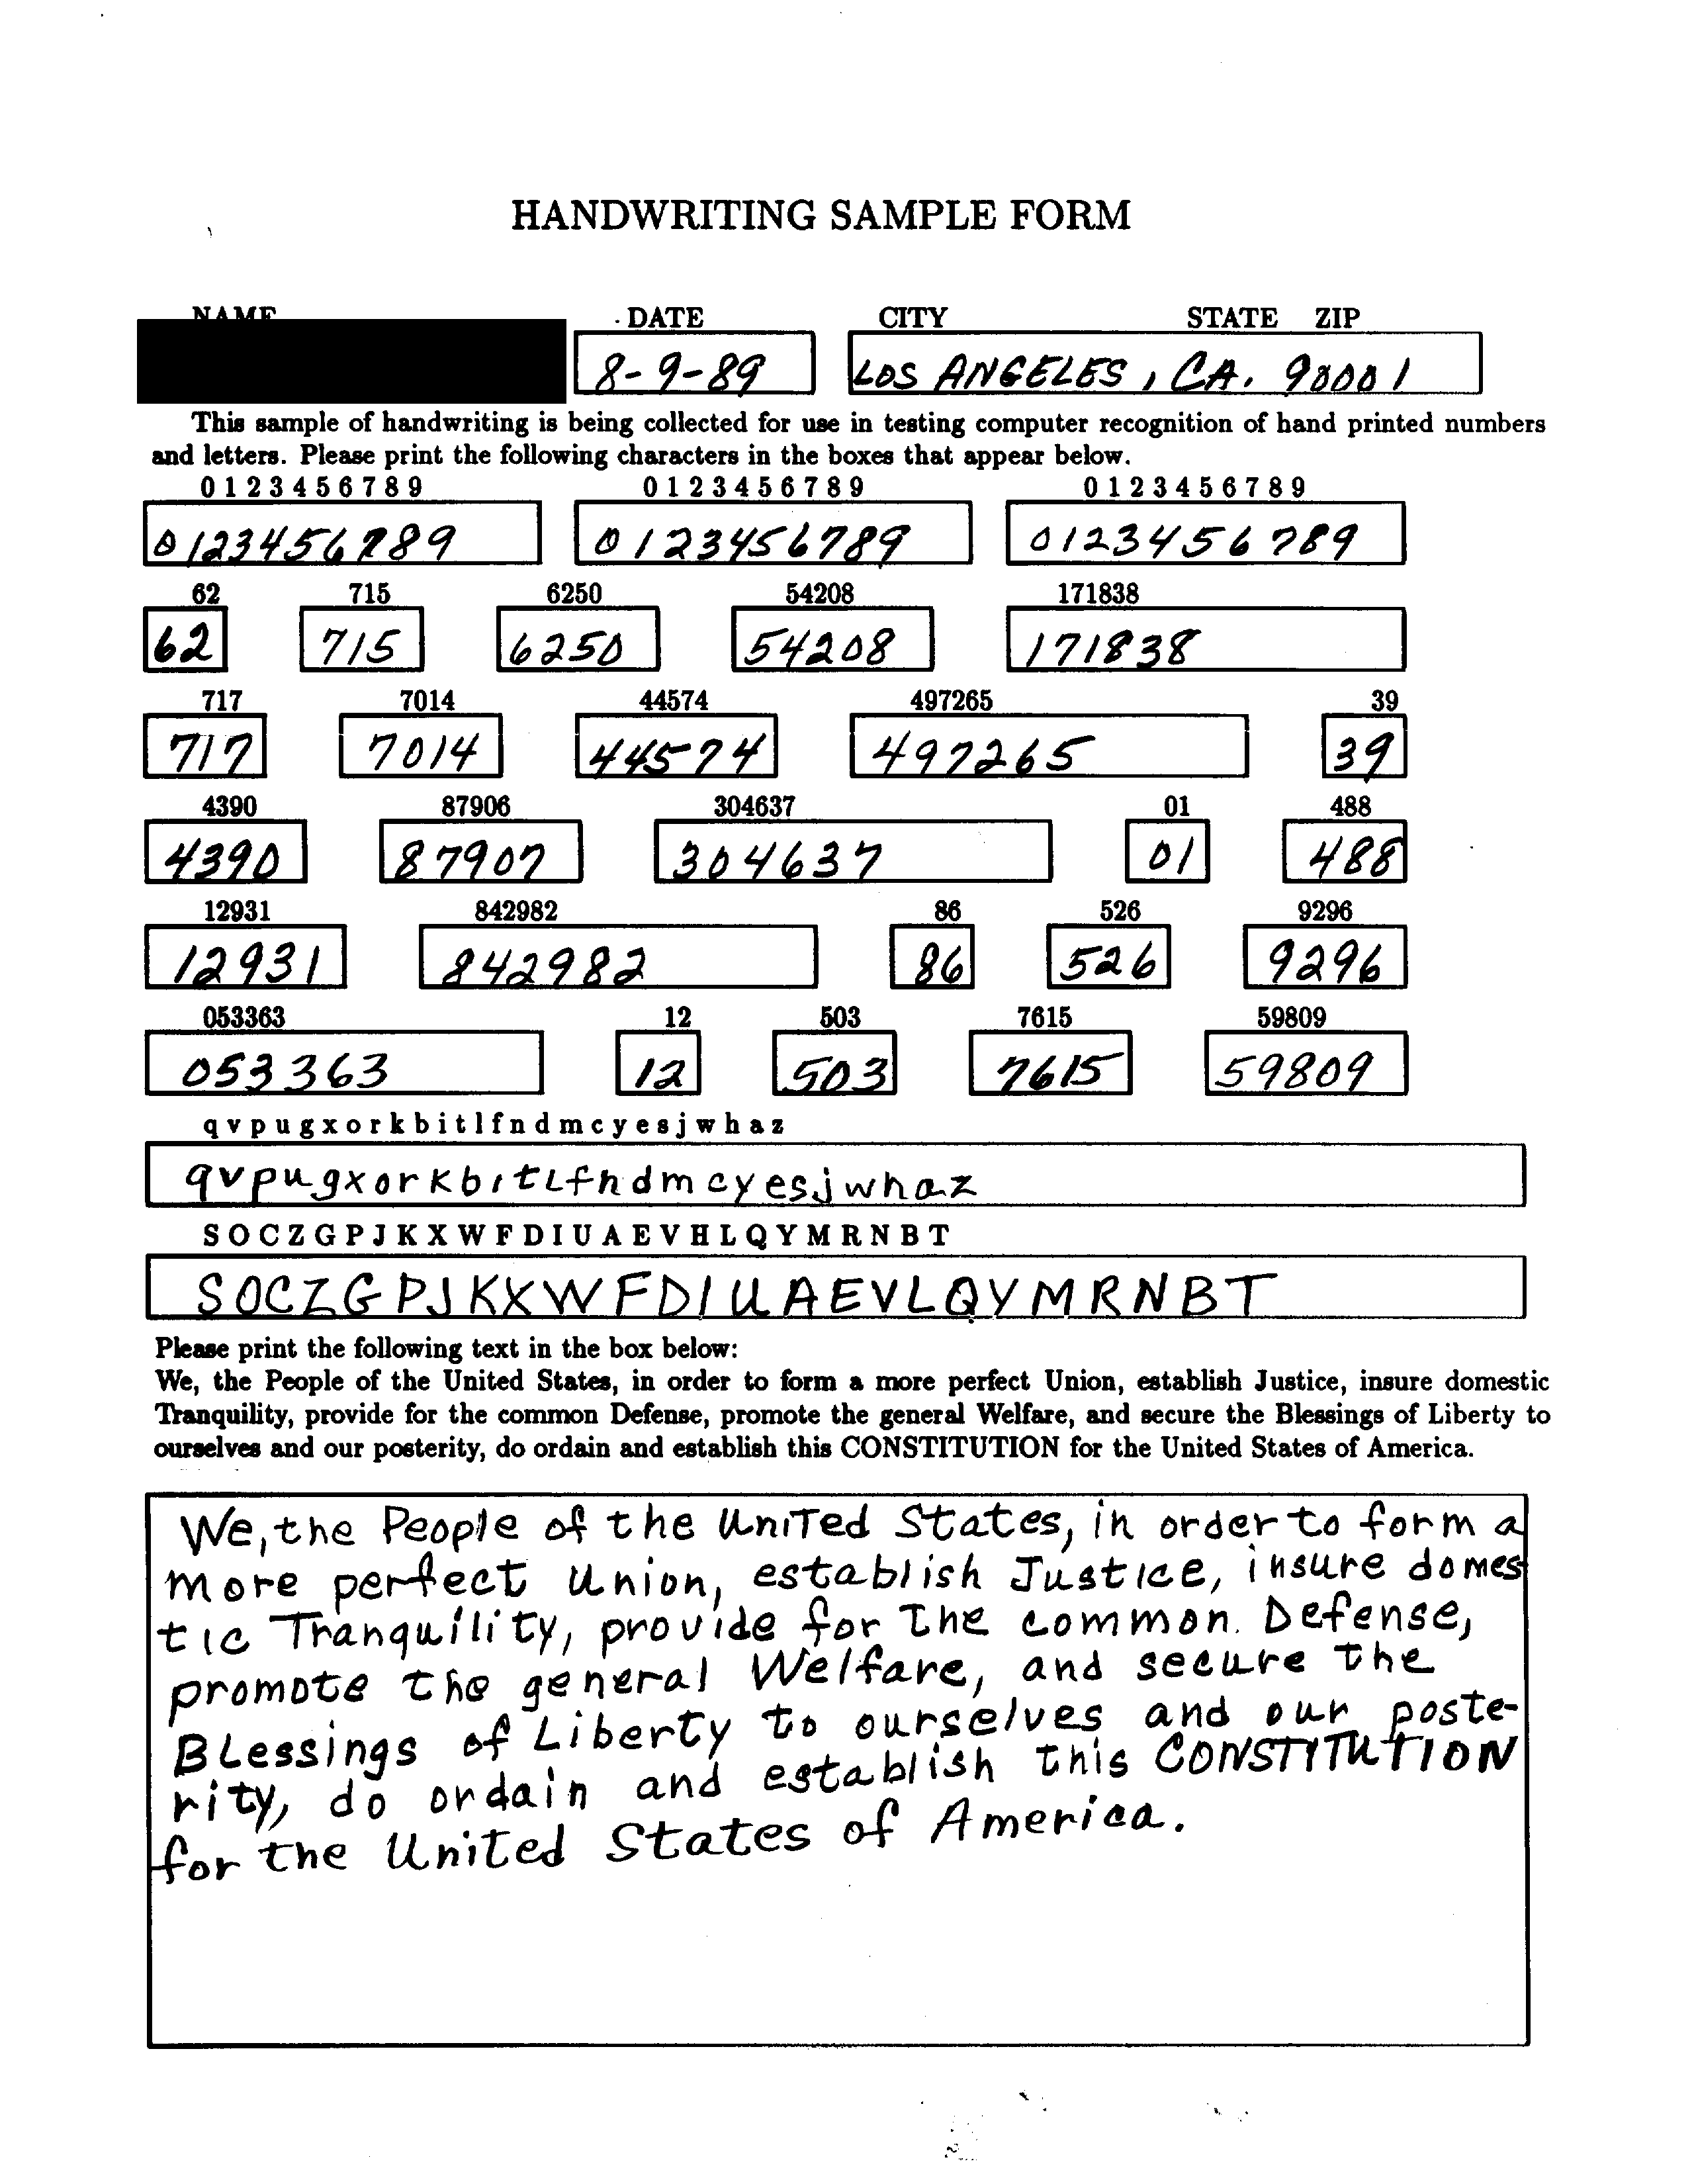 HANDWRITING SAMPLE FORM
NAME DATE CITY STATE ZIP
8-9-89 LOS ANGELES, CA. 90001
This sample of handwriting is being collected for use in testing computer recognition of hand printed numbers
and letters. Please print the following characters in the boxes that appear below.
0 1 2 3 4 5 6 7 8 9 0 1 2 3 4 5 6 7 8 9 0 1 2 3 4 5 6 7 8 9
0123456789 0123456789 0123456789
62 715 6250 54208 171838
62 715 6250 54208 171838
717 7014 44574 497265 39
717 7014 44574 497265 39
4390 87906 304637 01 488
4390 87907 304637 01 488
12931 842982 86 526 9296
12931 842982 86 526 9296
053363 12 503 7615 59809
053363 12 503 7615 59809
q v p u g x o r k b i t l f n d m c y e s j w h a z
qvpugxorkbitlfndmcyesjwhaz
S O C Z G P J K X W F D I U A E V H L Q Y M R N B T
SOCZGPJKXWFDIUAEVLQYMRNBT
Please print the following text in the box below:
We, the People of the United States, in order to form a more perfect Union, establish Justice, insure domestic
Tranquility, provide for the common Defense, promote the general Welfare, and secure the Blessings of Liberty to
ourselves and our posterity, do ordain and establish this CONSTITUTION for the United States of America.
We, the People of the United States, in order to form a
more perfect Union, establish Justice, insure domes
tic Tranquility, provide for the common. Defense,
promote the general Welfare, and secure the
Blessings of Liberty to ourselves and our poste-
rity, do ordain and establish this CONSTITUTION
for the United States of America.